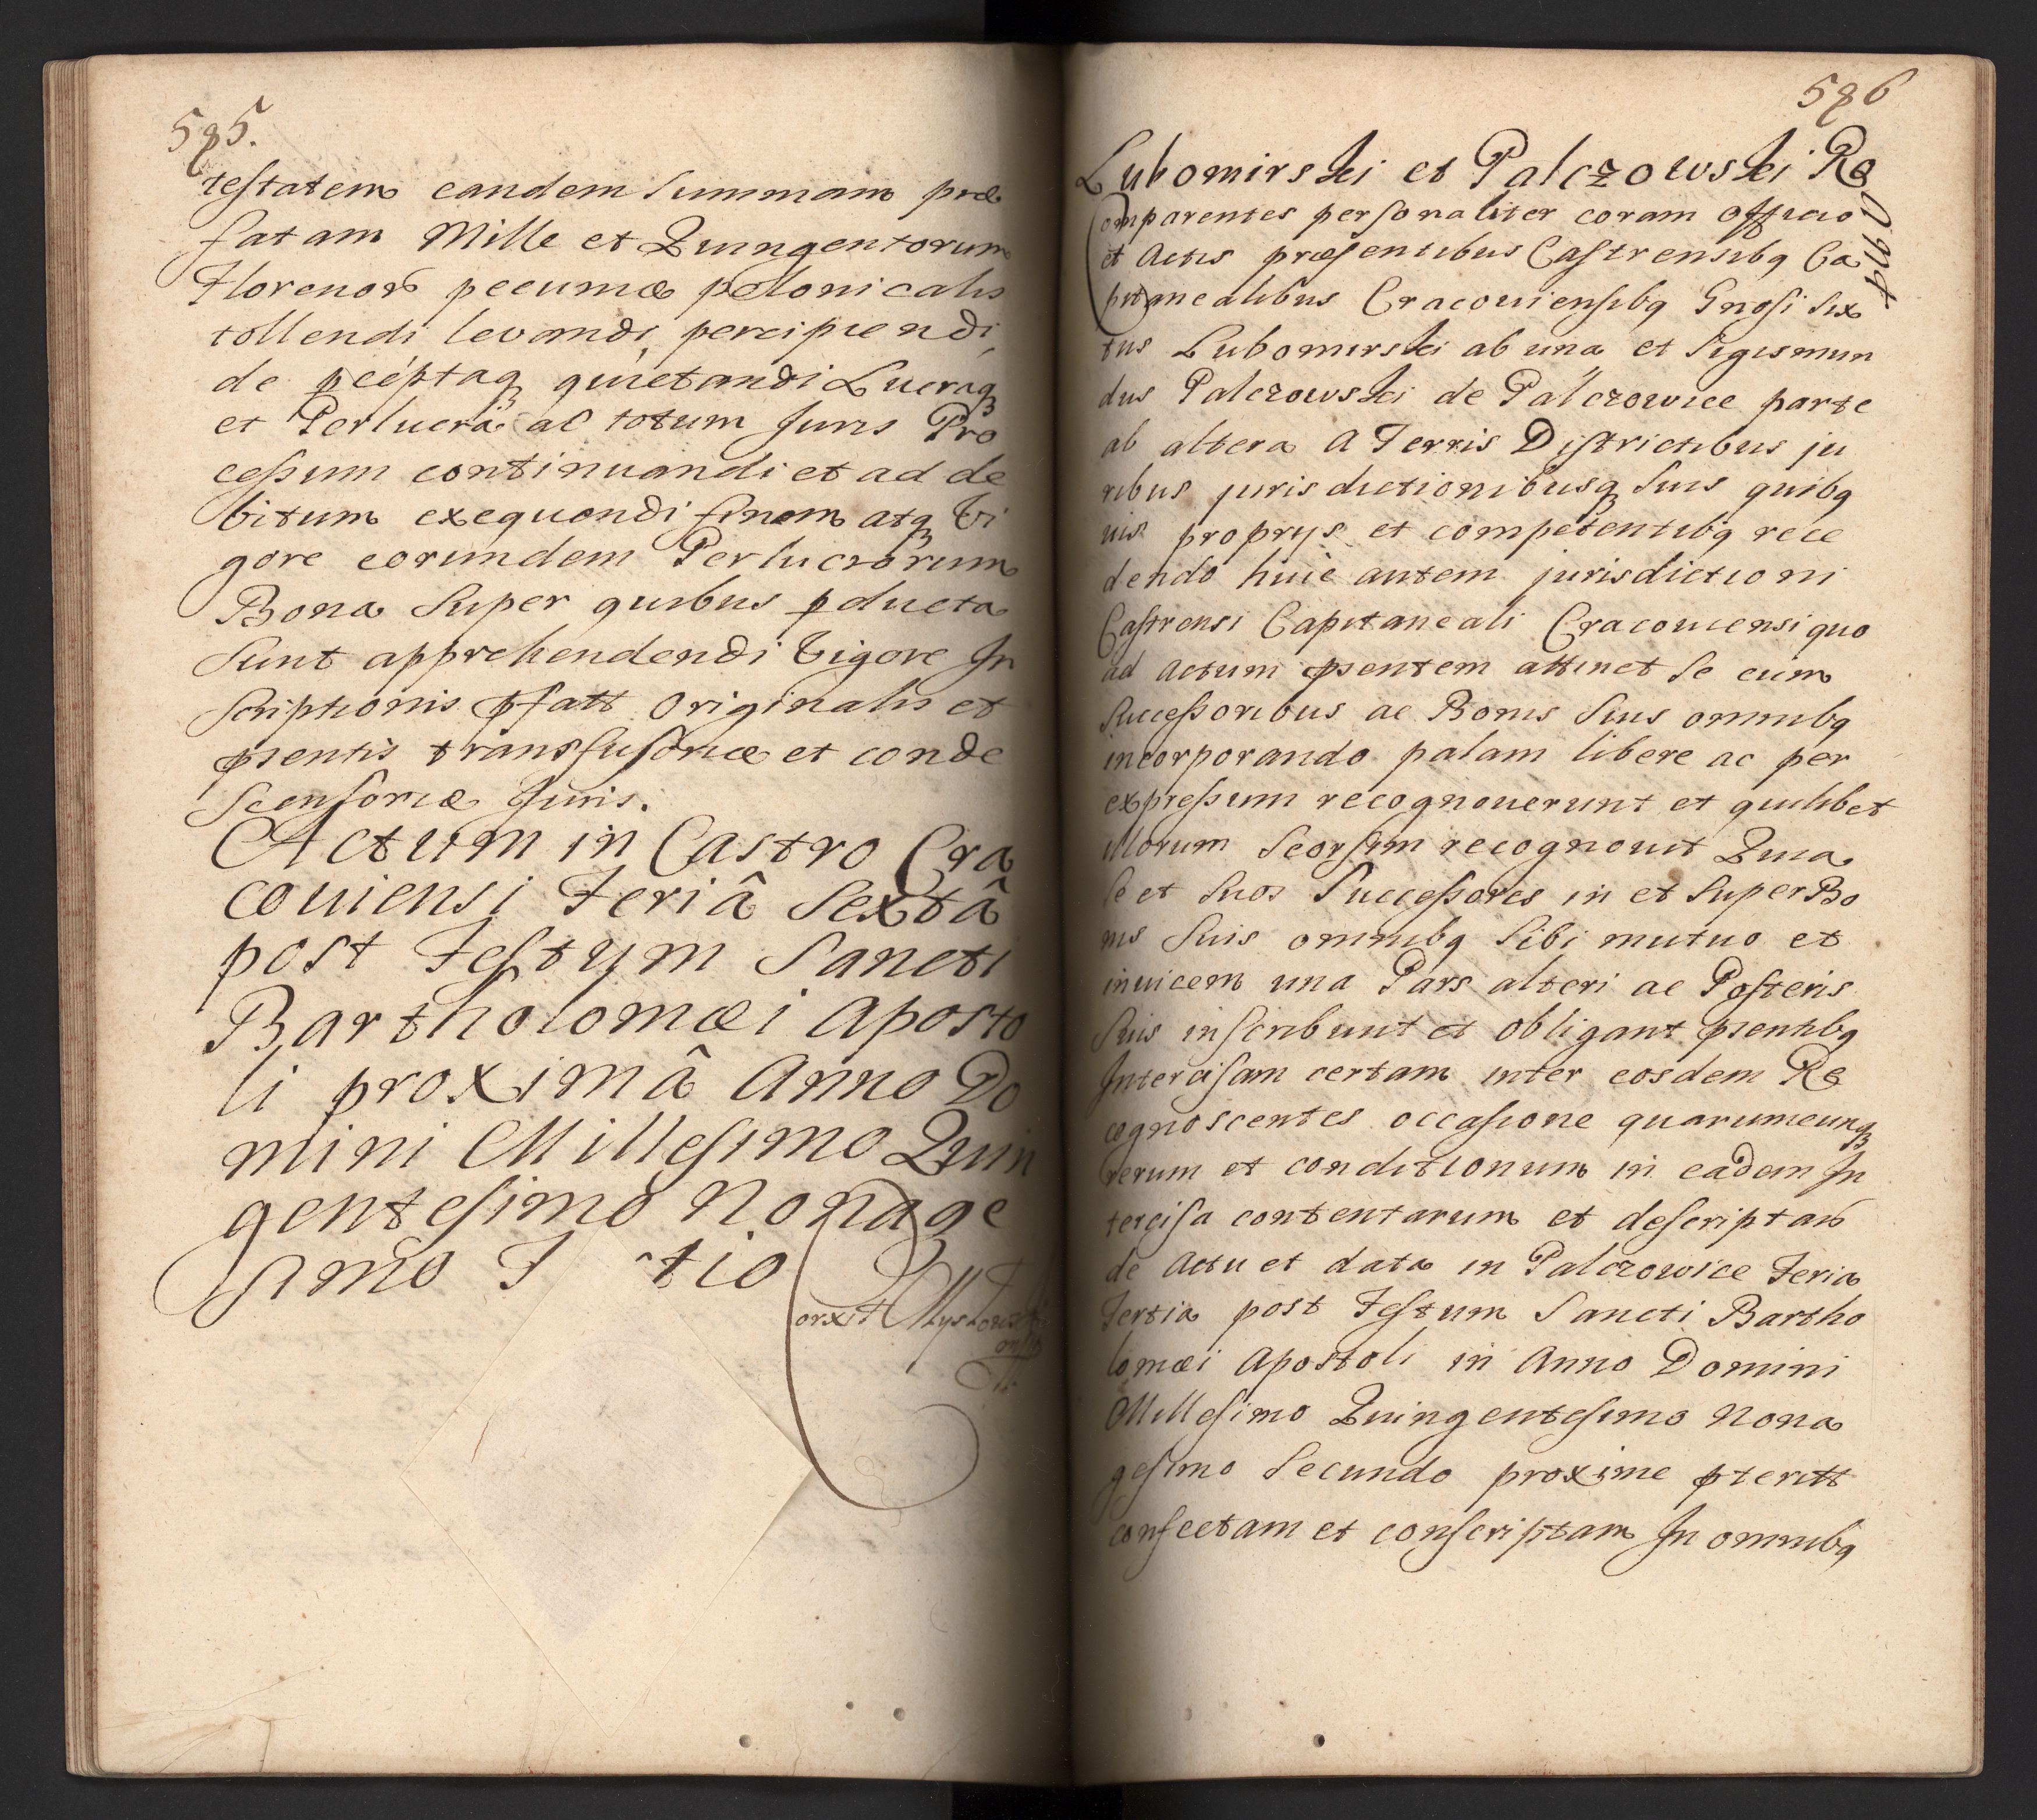 585.
testatem eandem Summam præ
fatam Mille et Quingentorum
Florenor pecuniæ polonicalis
tollendi levandi percipiendi
de pceptaq quietandi Lucraq
et Perlucra ac totum Juris Pro
cessum continuandi et ad de
bitum exequendi finem atq Vi
gore eorundem Perlucrorum
Bona Super quibus pducta
Sunt apprehendendi Vigore In
scriptionis pfatt originalis et
psentis transfusoriæ et conde
scensoriæ Juris.
Actum in Castro Cra
coviensi Feriâ Sextâ
post Festum Sancti
Bartholomæi Aposto
li proximâ Anno Do
mini Millesimo Quin
gentesimo Nonage
simo T tio
586
Lubomirski et Palczowski Re
Comparentes personaliter coram officio
et Actis præsentibus Castrensibq Ca
pitanealibus Cracouiensibq Gnosi Six
tus Lubomirski ab una et Sigismun
dus Palczowski de Palczowice parte
ab altera A Terris Districtibus ju
ribus jurisdictionibusq Suis quibq
uis proprys et competentibq rece
dendo huic autem jurisdictioni
Castrensi Capitaneali Cracouiensi quo
ad actum psentem attinet Se cum
Successoribus ac Bonis Suis omnibq
incorporando palam libere ac per
expressum recognouerunt et quilibet
illorum Seorsim recognouit Quia
se et Suos Successores in et Super Bo
nis Suis omnibq Sibi mutuo et
inuicem una Pars alteri ac Posteris
Suis inscribunt et obligant psentibq
Intercisam certam inter eosdem Re
cognoscentes occasione quarumcunq
rerum et conditionum in eadem In
tercisa contentarum et descriptar
de Actu et data in Palczowice Feria
Tertia post Festum Sancti Bartho
lomæi Apostoli in Anno Domini
Millesimo Quingentesimo Nona
gesimo Secundo proxime pteritt
confectam et conscriptam In omnibq